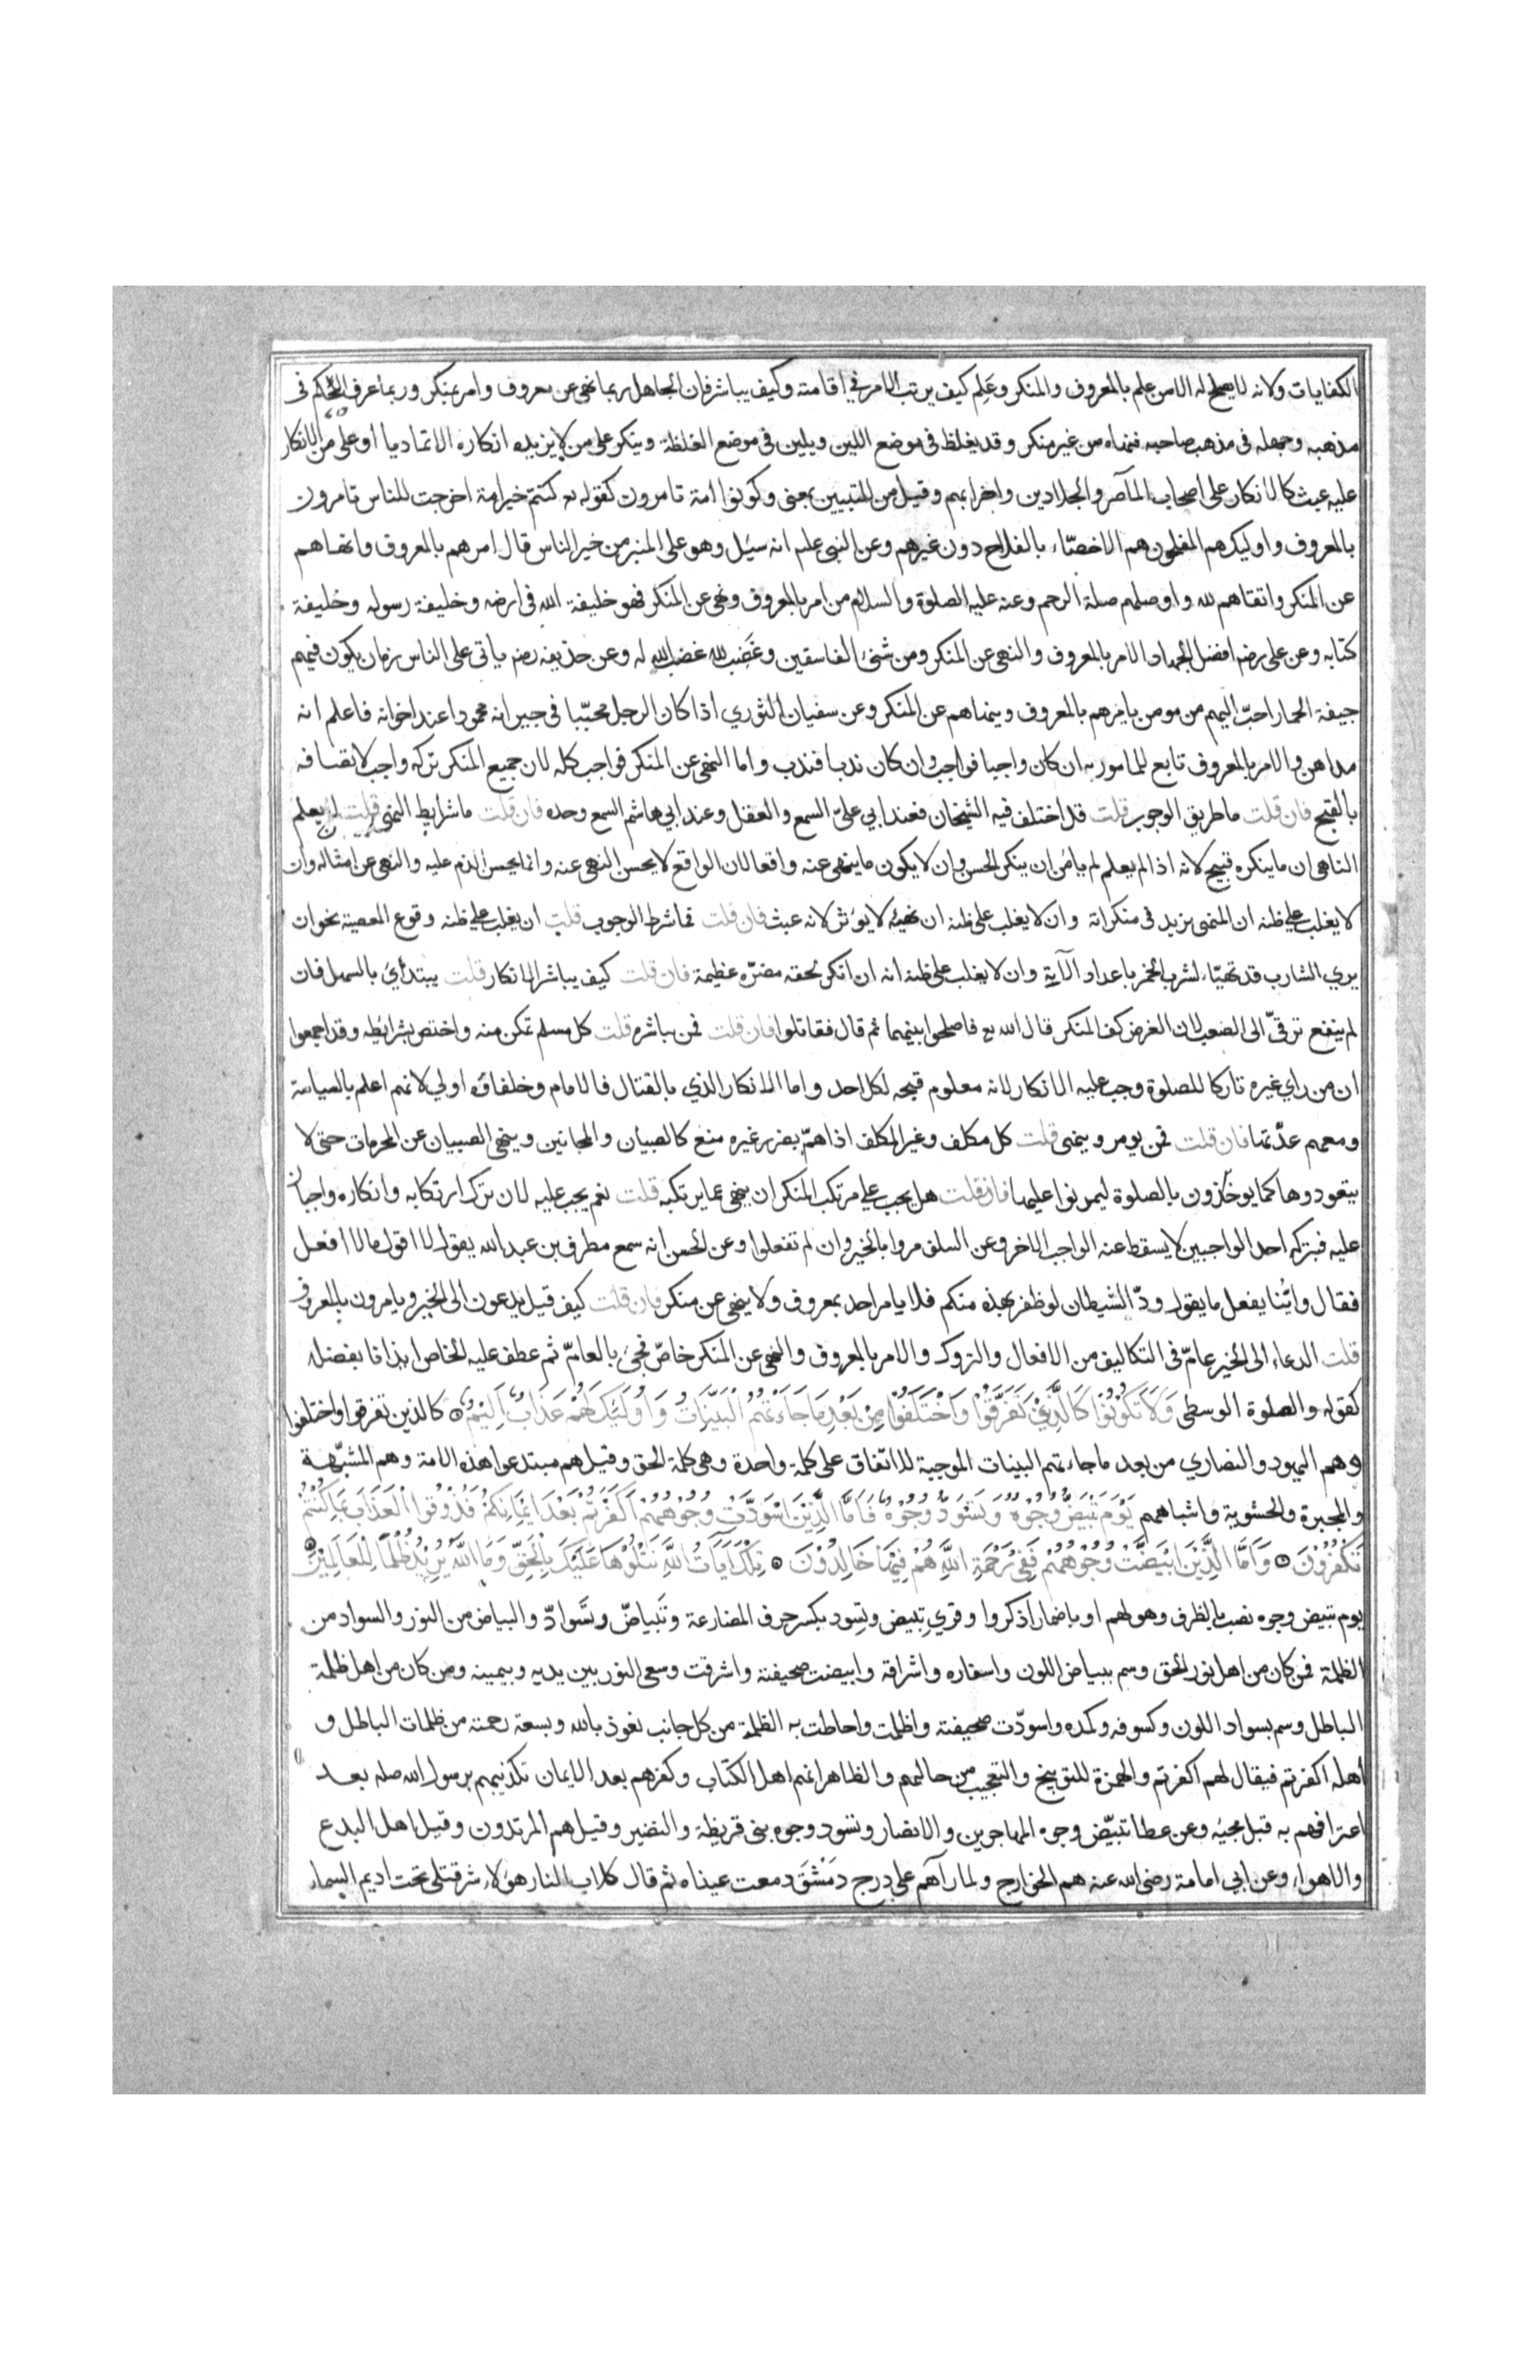 الكفايات ولانه لا يصلح له الا من علم بالمعروف والمنكر وعلم كيف يرتب الامر في اقامته وكيف يباشر فان الجاهل ربما نهى عن معروف وامر بمنكر وربما عرف الحكم في
مذهبه وجهله في مذهب صاحبه فنهاه من غير منكر وقد يغلظ في موضع اللين ويلين في موضع الغلظة وينكر على من لا يزيده انكاره الا تماديا او على من الانكار
عليه عبث كالانكار على اصحاب المآصر والجلادين واخرابهم وقيل من للتبيين بمعنى وكونوا امة تامرون كقوله تع كنتم خير امة اخرجت للناس تامرون
بالمعروف واوليك هم المفلحون هم الاخصّاء بالفلاح دون غيرهم وعن النبي علم انه سئل وهو على المنبر من خير الناس قال امرهم بالمعروف وانهاهم
عن المنكر واتقاهم لله واوصلهم صلة الرحم وعنه عليه الصلوة والسلام من امر بالمعروف ونهى عن المنكر فهو خليفة الله في ارضه وخليفة رسوله وخليفة
كتابه وعن على رضه افضل الجهاد الامر بالمعروف والنهى عن المنكر ومن شنئ الفاسقين وغَضِب لله غضب الله له وعن حذيفه رضه ياتى على الناس زمان يكون فيهم
جيفة الحمار احبّ اليهم من مومن يامرهم بالمعروف وينهاهم عن المنكر وعن سفيان الثوري اذا كان الرجل محبّبا في جيرانه محمودا عند اخوانه فاعلم انه
مداهن والامر بالمعروف تابع للمامور به ان كان واجبا فواجب وان كان ندبا فندب واما النهى عن المنكر فواجب كله لان جميع المنكر تركه واجب لاتصافه
بالقبح فان قلت ما طريق الوجوب قلت قد اختلف فيه الشيخان فعند ابي علىّ السمع والعقل وعند ابي هاشم السمع وحده فان قلت ما شرايط النهى قلت ان يعلم
الناهى ان ما ينكره قبيح لانه اذا لم يعلم لم يامن ان ينكر الحسن وان لا يكون ما ينهى عنه واقعا لان الواقع لا يحسن النهى عنه وانما يحسن الذم عليه والنهى عن امثاله وان
لا يغلب على ظنه ان المنهى يزيد في منكراته وان لا يغلب على ظنه ان نهيه لا يوثر لانه عبث فان قلت فما شرط الوجوب قلت ان يغلب على ظنه وقوع المعصية نحو ان
يري الشارب قد تهيّاء لشرب الخمر باعداد الآية وان لا يغلب على ظنه انه ان انكر لحقه مضرّه عظيمة فان قلت كيف يباشر الانكار قلت يبتدأي بالسهل فان
لم ينفع ترقىّ الى الصعب لان الغرض كف المنكر قال الله تع فاصلحوا بينهما ثم قال فقاتلوا فان قلت فمن يباشره قلت كل مسلم تمكن منه واختص بشرائطه وقد اجمعوا
ان من راي غيره تاركا للصلوة وجب عليه الانكار لانه معلوم قبحه لكل احد واما الانكار الذي بالقتال فالامام وخلفاؤه اولي لانهم اعلم بالسياسة
ومعهم عدّتها فان قلت فمن يومر وينهى قلت كل مكلف وغير المكلف اذا همّ بضرر غيره منع كالصبيان والمجانين وينهى الصبيان عن المحرمات حتى لا
يتعودوها كما يوخذون بالصلوة ليمرنوا عليها فان قلت هل يجب على مرتكب المنكر ان ينهى عما يرتكبه قلت نعم يجب عليه لان ترك ارتكابه وانكاره واجبان
عليه فبتركه احد الواجبين لا يسقط عنه الواجب الاخر وعن السلف مروا بالخير وان لم تفعلوا وعن الحسن انه سمع مطرف بن عبد الله يقول لا اقول ما لا افعل
فقال وايّنا يفعل ما يقول ودّ الشيطان لو ظفر بهذه منكم فلا يامر احد بمعروف ولا ينهى عن منكر فان قلت كيف قيل يدعون الى الخير ويامرون بالمعروف
قلت الدعاء الى الخير عامّ في التكاليف من الافعال والتروك والامر بالمعروف والنهى عن المنكر خاصّ فجئ بالعامّ ثم عطف عليه الخاص ايذانا بفضله
كقوله والصلوة الوسطى وَلَا تَكُونُوا كَالَّذِينَ تَفَرَّقُوا وَاخْتَلَفُوا مِنْ بَعْدِ مَا جَاءَتْهُمُ الْبَيِّنَاتُ وَاُولَئِكَ لَهُمْ عَذَابٌ اَلِيْمٌ كالذين تفرقوا واختلفوا
وهم اليهود والنصاري من بعد ما جاءتهم البينات الموجبة للاتّفاق على كلمة واحدة وهى كلمة الحق وقيل هم مبتدعوا هذه الامة وهم المشبّهة
والمجبرة والحشوية واشباههم يَوْمَ تَبْيَضُّ وُجُوْهٌ وَتَسْوَدُّ وُجُوْهٌ فَاَمَّا الَّذِينَ اسْوَدَّتْ وُجُوْهُهُمْ اَكَفَرْتُمْ بَعْدَ اِيْمَانِكُمْ فَذُوْقُوا الْعَذَابَ بِمَا كُنْتُمْ
تَكْفُرُوْنَ وَاَمَّا الَّذِيْنَ ابْيَضَّتْ وُجُوْهُهُمْ فَفِى رَحْمَةِ اللَّهِ هُمْ فِيْهَا خَالِدُوْنَ تِلْكَ اٰيَاتُ اللَّهِ نَتْلُوْهَا عَلَيْكَ بِالْحَقِّ وَمَا اللَّهُ يُرِيْدُ ظُلْمًا لِلْعَالَمِيْنَ
يوم تبيض وجوه نصب بالظرف وهو لهم او باضمار اذكروا وقري تِبيض وتِسود بكسر حرف المضارعة وتَبياضّ وتَسوادّ والبياض من النور والسواد من
الظلمة فمن كان من اهل نور الحق وسم ببياض اللون واسفاره واشراقه وابيضت صحيفته واشرقت وسعى النور بين يديه وبيمينه ومن كان من اهل ظلمة
الباطل وسم بسواد اللون وكسوفه وكمده واسودّت صحيفته واظلمت واحاطت به الظلمة من كل جانب نعوذ بالله وبسعة رحمته من ظلمات الباطل و
أهله اكفرتم فيقال لهم اكفرتم والهمزة للتوبيخ والتعجيب من حالهم والظاهر انهم اهل الكتاب وكفرهم بعد الايمان تكذيبهم برسول الله صله بعد
اعترافهم به قبل مجيئه وعن عطا تبيّض وجوه المهاجرين والانصار وتسود وجوه بنى قريظة والنضير وقيل هم المرتدون وقيل اهل البدع
والاهواء وعن ابي امامة رضى الله عنه هم الخوارج ولما رآهم على درج دمَشْقَ دمعت عيناه ثم قال كلاب النار هؤلاء شر قتلى تحت اديم السماء